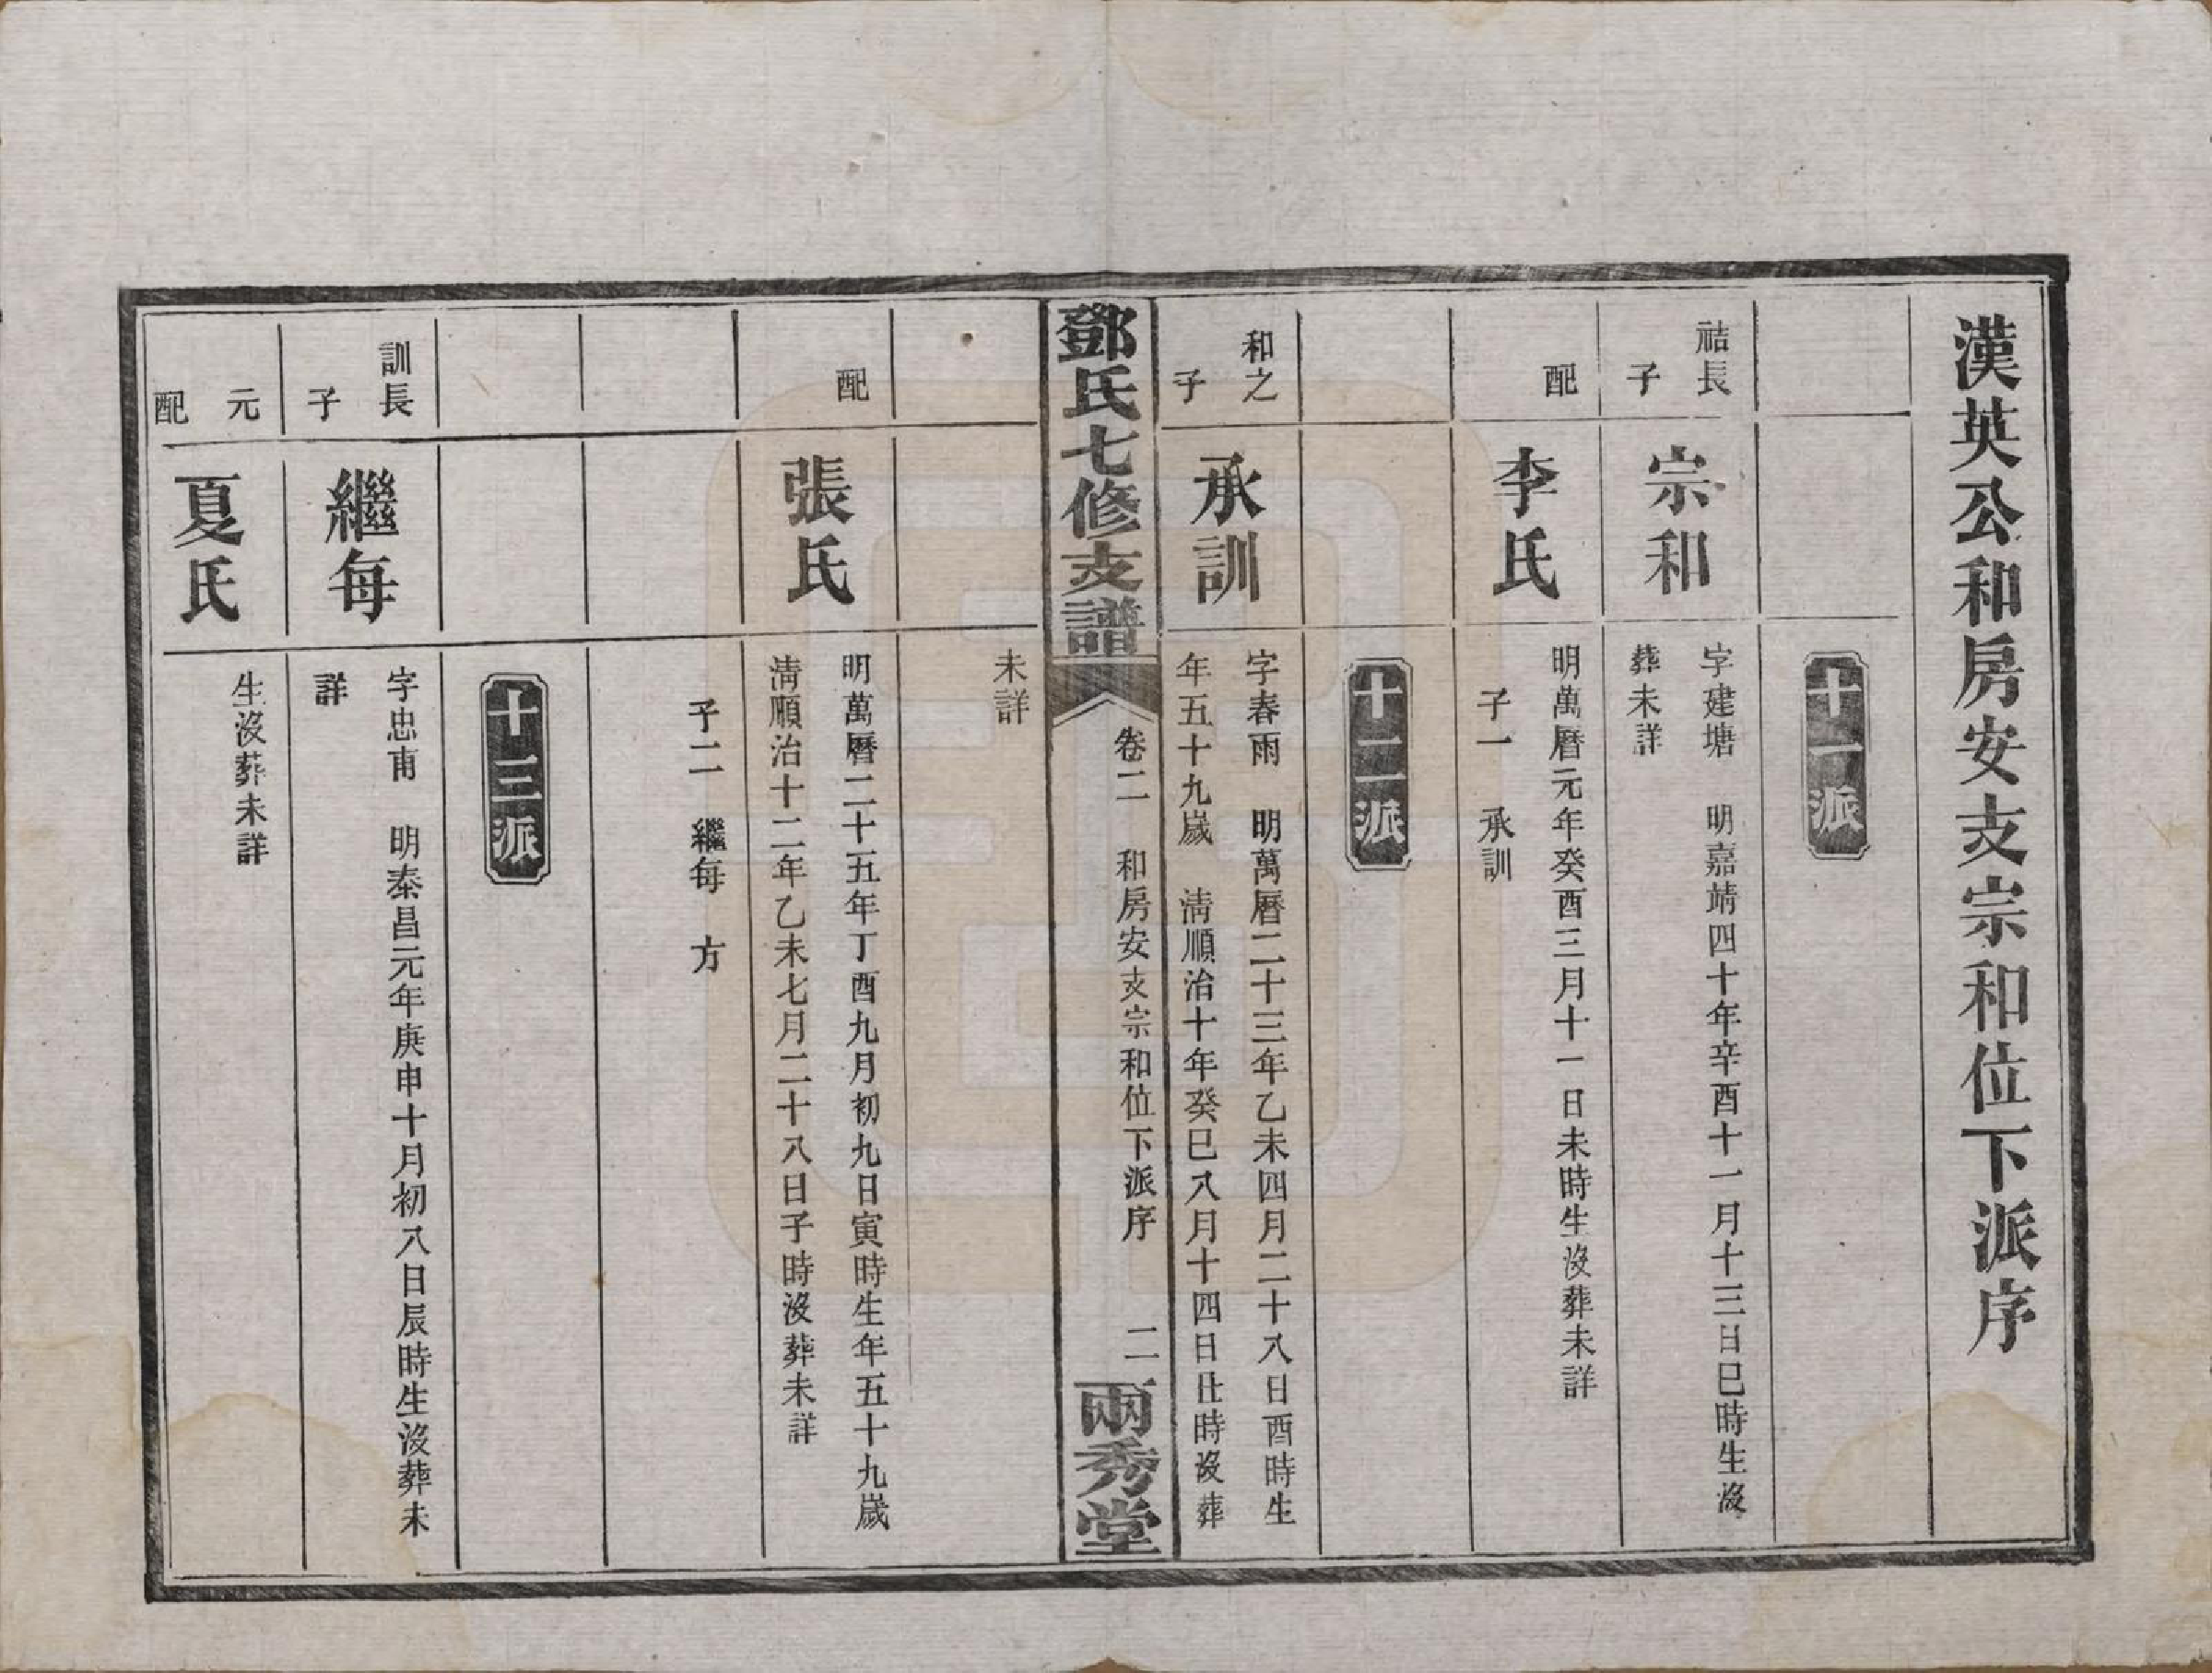 漢英公和房安支宗和位下派序
十一派
祮長
子
宗和
字建塘　明嘉靖四十年辛酉十一月十三日巳時生沒
葬未詳
配
李氏
明萬曆元年癸酉三月十一日未時生沒葬未詳
子一　承訓
十二派
和之
子
承訓
字春雨　明萬曆二十三年乙未四月二十八日酉時生
年五十九歲　清順治十年癸巳八月十四日丑時沒葬
鄧氏七修支譜
卷二　和房安支宗和位下派序
二
兩秀堂
未詳
配
張氏
明萬曆二十五年丁酉九月初九日寅時生年五十九歲
清順治十二年乙未七月二十八日子時沒葬未詳
子二　繼每　方
十三派
訓長
子
繼每
字忠甫　明泰昌元年庚申十月初八日辰時生沒葬未
詳
元
配
夏氏
生沒葬未詳